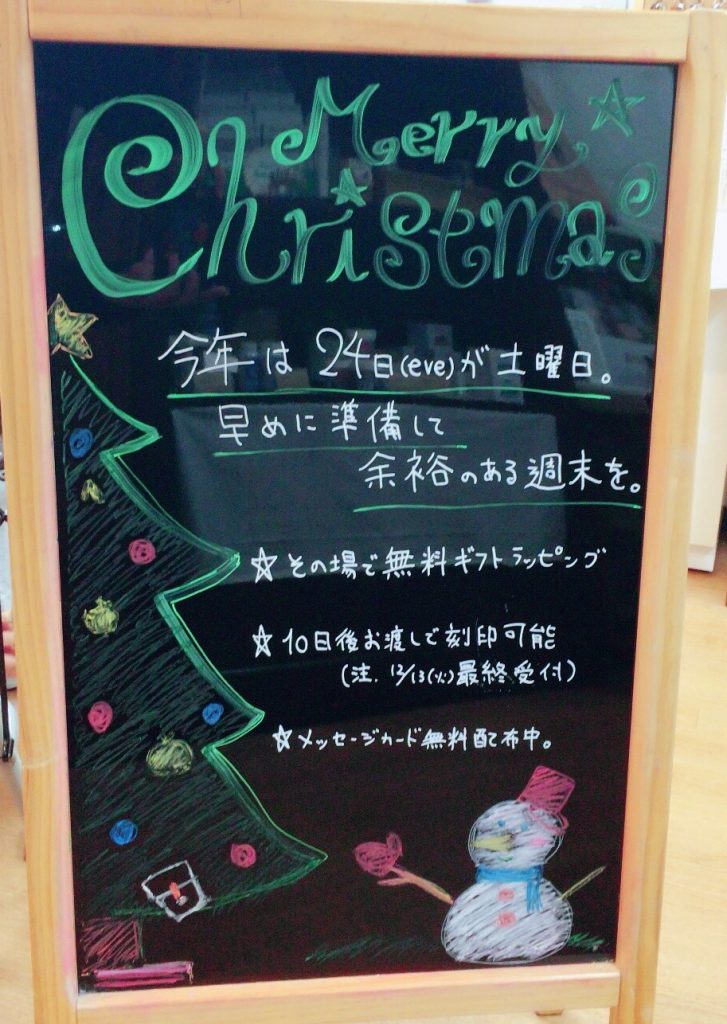 Merry
Christmas
今年は 24日(eve)が土曜日。
早めに準備して
余裕のある週末を。
☆その場で無料ギフトラッピング
☆10日後お渡しで刻印可能
(注. 12/13(火)最終受付)
☆メッセージカード無料配布中。